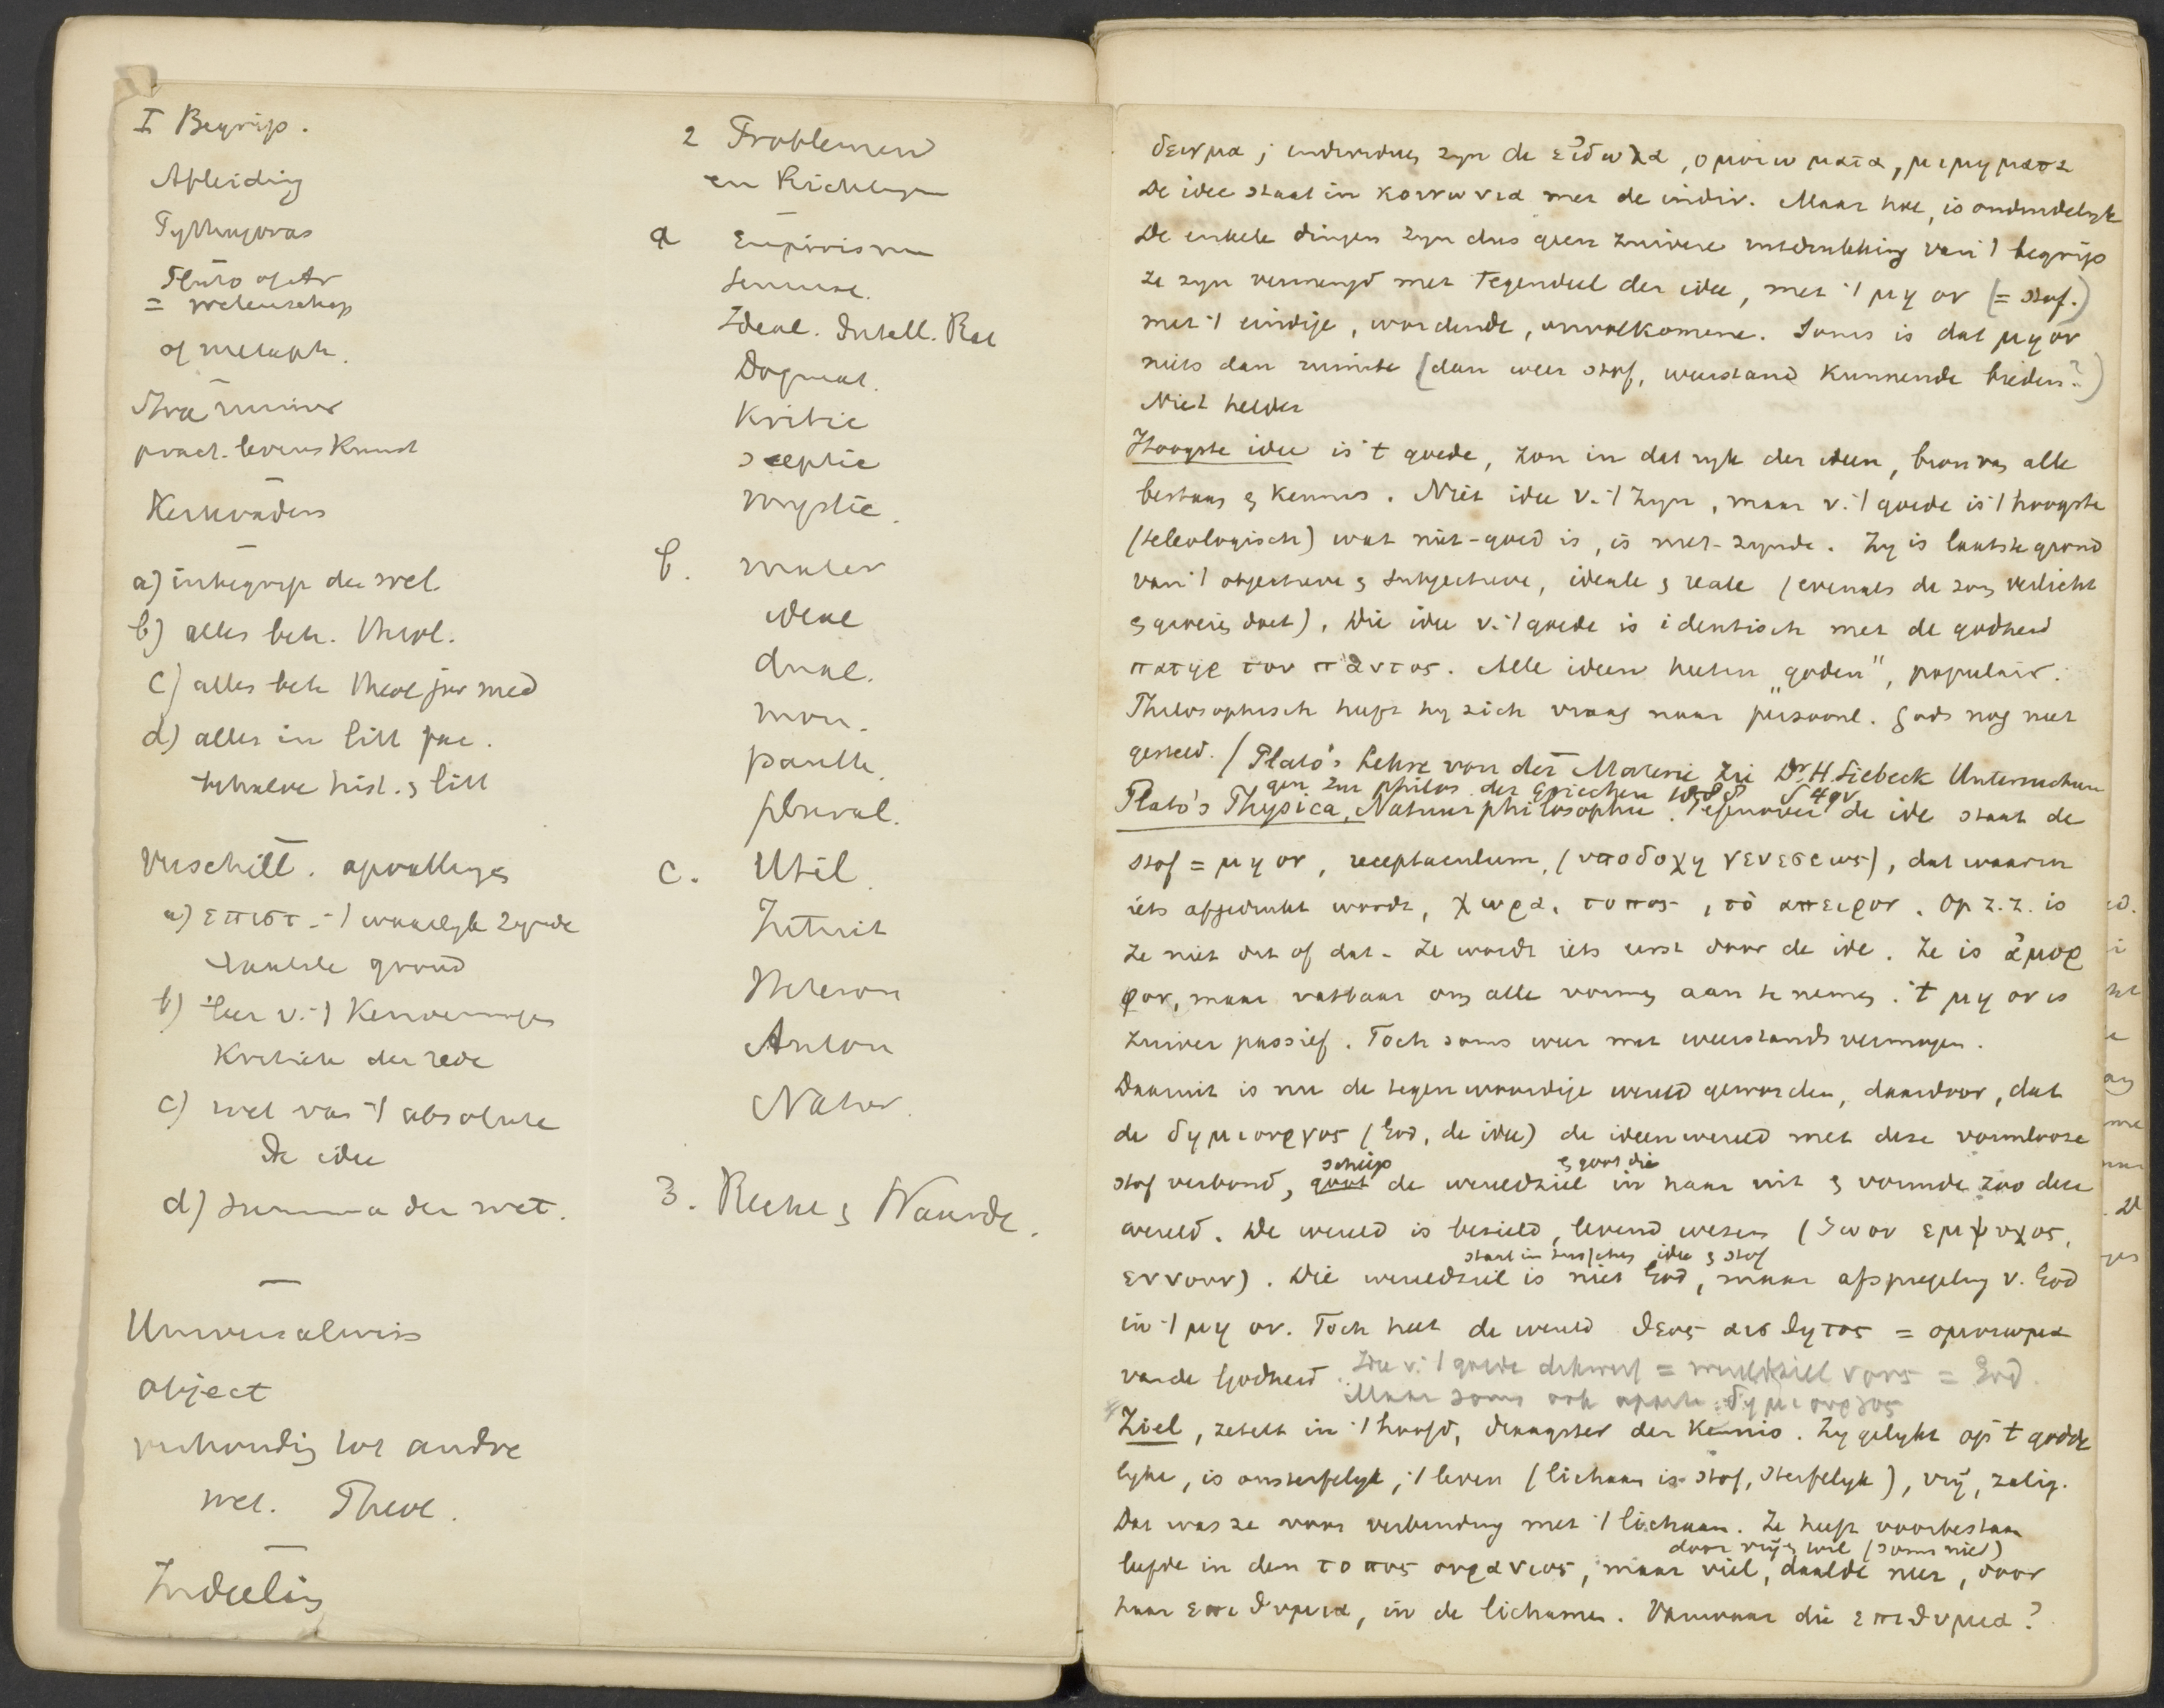 I Begrip.
Afleiding
Pythagoras
Plato of Ar
= wetenschap
of metaph.
Stra Romeinen
pract. levens Kunst
Kerkvaders
a) inbegrip der wet.
b) alles beh. Theol.
c) alles beh Theol jur med
d) alles in litt fac.
behalve hist. & litt
Verschill. opvattingen
a) επιστ. - 't waarlyk zynde
laatste grond
b) leer v. 't Kenvermogen
Kritiek der rede
c) wet van 't absolute
De idee
d) summa der wet.
Universalwiss
object
verhouding tot andre
wet. Theol.
Indeeling
2 Problemen
en Richtingen
a Empirisme
Sensual.
Ideal. Intell. Rat
Dogmat.
Kritic
sceptic
mystic.
b. mater
ideal
dual.
mon.
panth.
plural.
c. Util.
Intuit
Heteron
Auton
Natur.
3. Recht & Waarde.
δειγμα; individuen zyn de εἴδωλα, ομοιωματα, μιμηματα
De idee staat in κοινωνια met de indiv. Maar hoe, is onduidelyk
De enkele dingen zyn dus geen zuivere uitdrukking van 't begrip
ze zyn vermengd met Tegendeel der idee, met 't μη ον (= stof.)
met 't eindige, wordende, onvolkomene. Soms is dat μη ον
niets dan ruimte (dan weer stof, weerstand kunnende bieden?)
Niet helder
Hoogste idee is 't goede, zon in dat ryk der ideen, bron van alle
bestaan & kennis. Niet idee v. 't zyn, maar v. 't goede is 't hoogste
(teleologisch) wat niet-goed is, is niet-zynde. Zy is laatste grond
van 't objectieve & subjectieve, ideale & reale (evenals de zon verlicht
& groeien doet). Die idee v. 't goede is identisch met de godheid
πατηρ του παντος. Alle ideen heeten "goden", populair.
Philosophisch heeft hy zich vraag naar persoonl. Gods nog niet
gesteld. (Plato's Lehre von der Materie zie Dr. H. Siebeck Untersuchun
gen zur Philos. der Griechen 1888 S 49v
Plato's Physica, Natuurphilosophie. Tegenover de idee staat de
stof = μη ον, receptaculum, (υποδοχη γενεσεως), dat waarin
iets afgedrukt wordt, χωρα, τοπος, τὸ απειρον. Op z.z. is
ze niet dit of dat. Ze wordt iets eerst door de idee. Ze is ἀμορ
φον, maar vatbaar om alle vormen aan te nemen. 't μη ον is
zuiver passief. Toch soms weer met weerstandsvermogen.
Daaruit is nu de tegenwoordige wereld geworden, daardoor, dat
de δημιουργος (God, de idee) de ideenwereld met deze vormlooze
schiep & goot die
stof verbond, goot de wereldziel in haar uit & vormde zoo deze
wereld. De wereld is bezield, levend wezen (ζωον εμψυχος,
staat in tusschen idee & stof
εννουν). Die wereldziel is niet God, maar afspiegeling v. God
in 't μη ον. Toch heet de wereld θεος αισθητος = ομοιωμα
van de Godheid. Idee v. 't goede dikwerf = wereldziel νους = God.
Maar soms ook aparte: δημιουργος
Ziel, zetelt in 't hoofd, draagster der Kennis. Zy gelykt op 't godde
lyke, is onsterfelyk, 't leven (lichaam is stof, sterfelyk), vrij, zalig.
Dat was ze voor verbinding met 't lichaam. Ze heeft voorbestaan
door vrijen wil (soms niet)
leefde in den τοπος ουρανιος, maar viel, daalde neer, door
haar επιθυμια, in de lichamen. Vanwaar die επιθυμια?